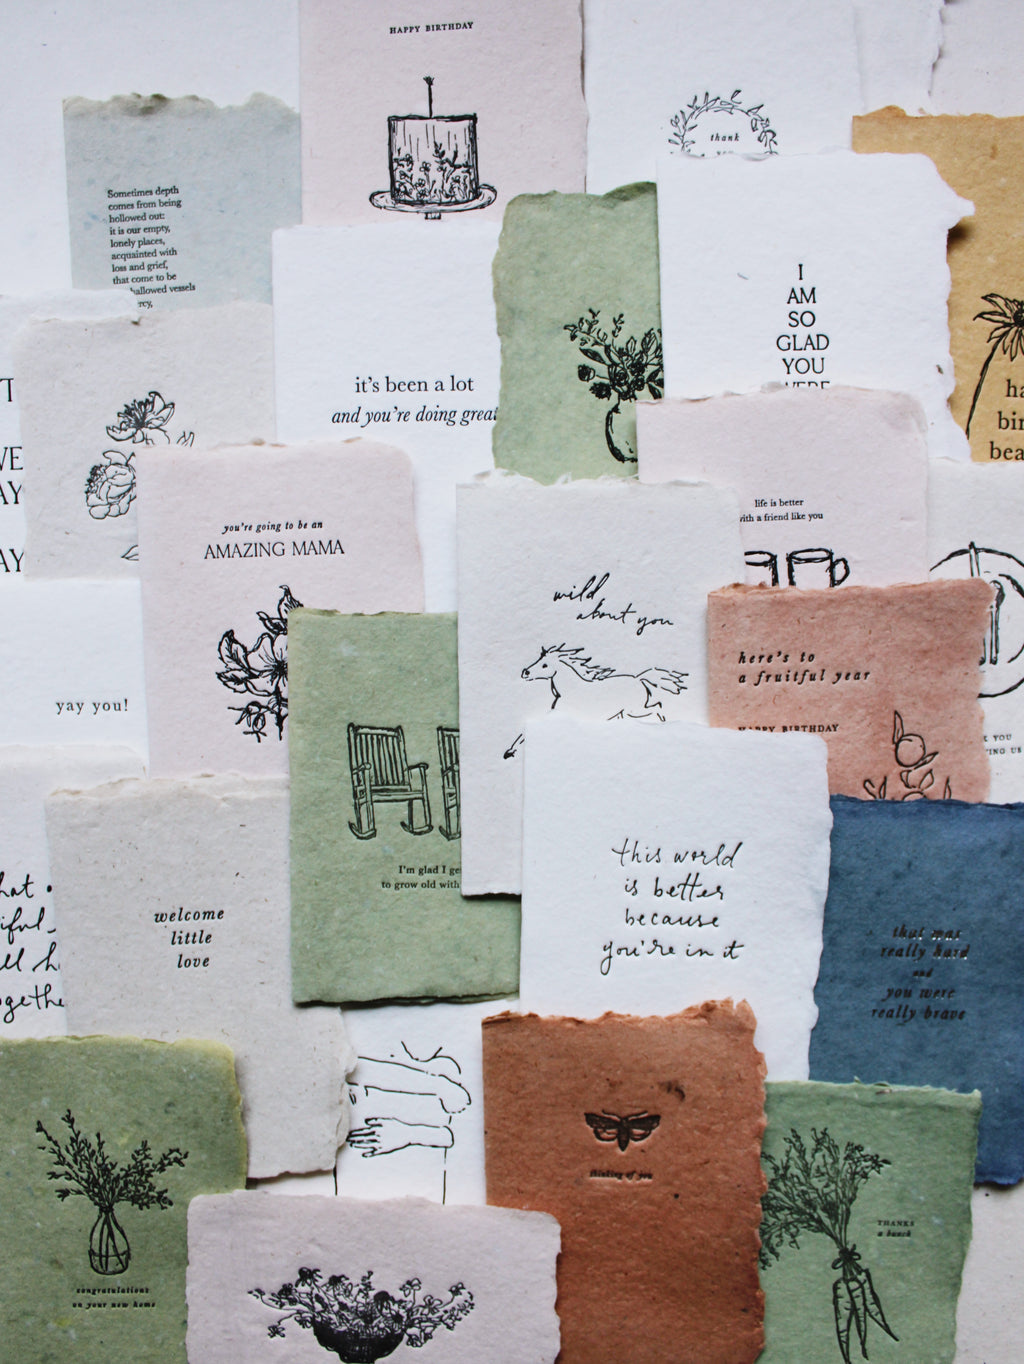 HAPPY BIRTHDAY
thank
Sometimes depth
comes from being
hollowed out:
it is our empty,
lonely places,
acquainted with
loss and grief,
that come to be
hallowed vessels
I
AM
SO
GLAD
YOU
WERE
it's been a lot
and you're doing great
life is better
with a friend like you
you're going to be an
AMAZING MAMA
wild
about you
here's to
a fruitful year
HAPPY BIRTHDAY
yay you!
I'm glad I
to grow old with
this world
is better
because
you're in it
welcome
little
love
that was
really hard
and
you were
really brave
thinking of you
THANKS
a bunch
congratulations
on your new home